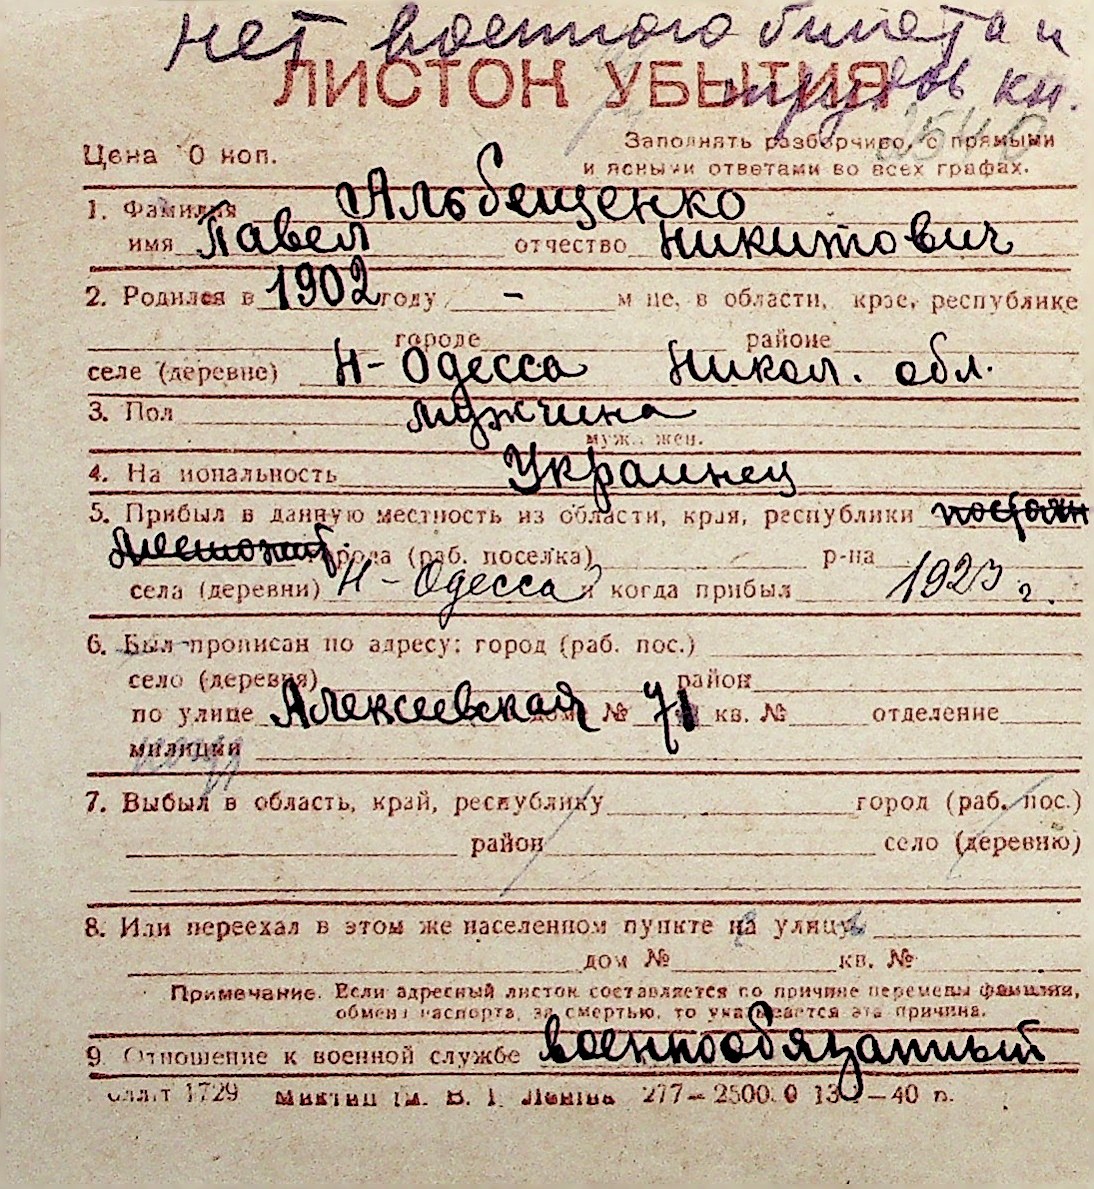 нет военного билета и
ЛИСТОК УБЫТИЯ
трудов кн.
Цена 10 коп.
Заполнять разборчиво, с прямыми
и ясными ответами во всех графах.
1. Фамилия Альбещенко
имя Павел отчество Никитович
2. Родился в 1902 году - м-це, в области, крае, республике
городе районе
селе (деревне) Н-Одесса Никол. обл.
3. Пол мужчина
муж., жен.
4. Национальность Украинец
5. Прибыл в данную местность из области, края, республики
города (раб. поселка) р-на
села (деревни) Н-Одесса и когда прибыл 1923 г.
6. Был прописан по адресу: город (раб. пос.)
село (деревня) район
по улице Алексеевская дом № 71 кв. № отделение
милиции
7. Выбыл в область, край, республику город (раб. пос.)
район село (деревню)
8. Или переехал в этом же населенном пункте на улицу
дом № кв. №
Примечание. Если адресный листок составляется по причине перемены фамилии,
обмена паспорта, за смертью, то указывается эта причина.
9. Отношение к военной службе военнообязанный
1729 ім. В. І. Леніна 277—2500.0 13 —40 п.